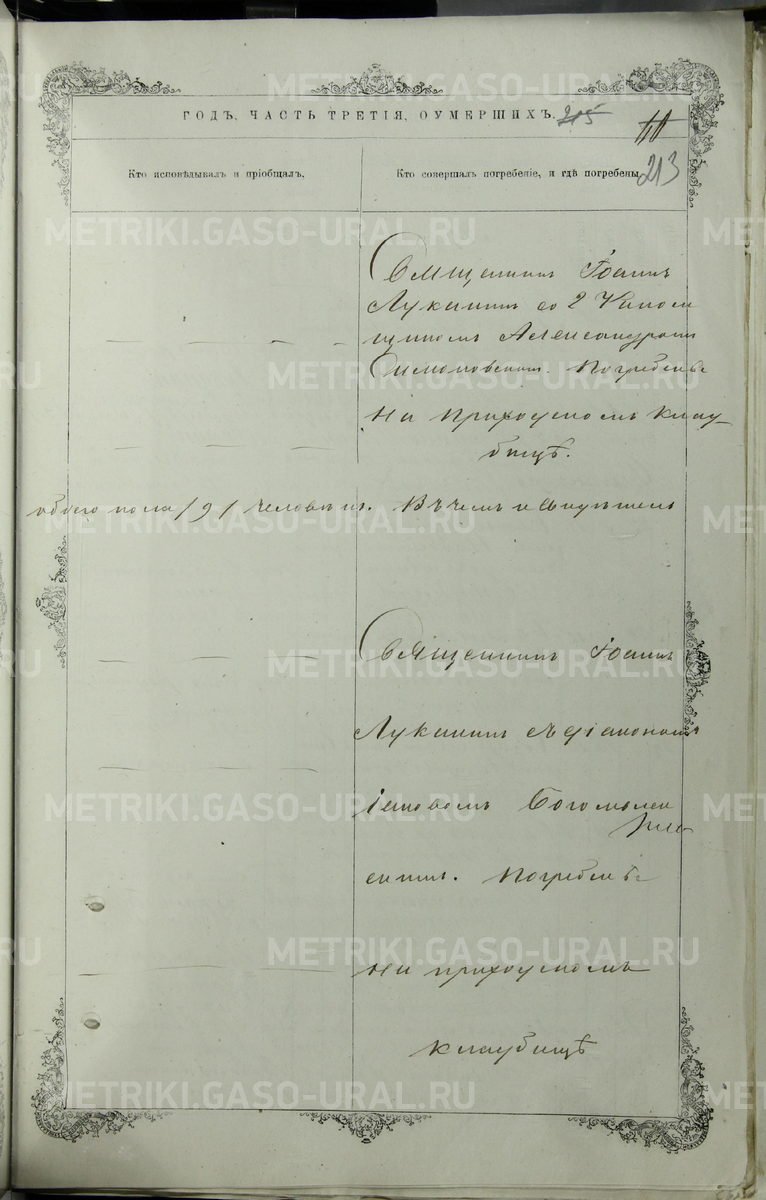 ГОДЪ, ЧАСТЬ ТРЕТІЯ, ОУМЕРШИХЪ.
215
213
Кто исповѣдывалъ и пріобщалъ.
Кто совершалъ погребеніе, и гдѣ погребены.
Священникъ Іоаннъ
Лукинъ со
щикомъ Александромъ
Симоновскимъ. Погребенъ
На приходскомъ клад
бищѣ.
обоего пола /9/ человѣкъ. Въ чемъ и
Священникъ Іоаннъ
Лукинъ съ діакономъ
Іаковомъ
Погребенъ
На приходскомъ
кладбищѣ
METRIKI.GASO-URAL.RU